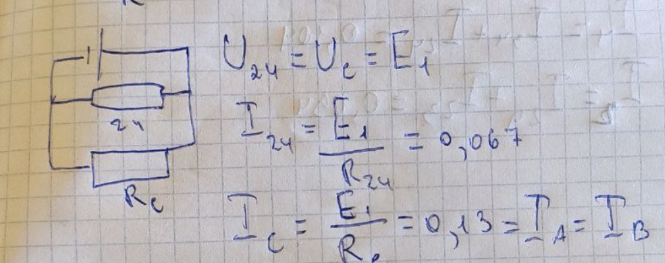 R
U₂₄ = U_C = E₁
24
I₂₄ = E₁ / R₂₄ = 0,067
R_C
I_C = E₁ / R_C = 0,13 = I_A = I_B